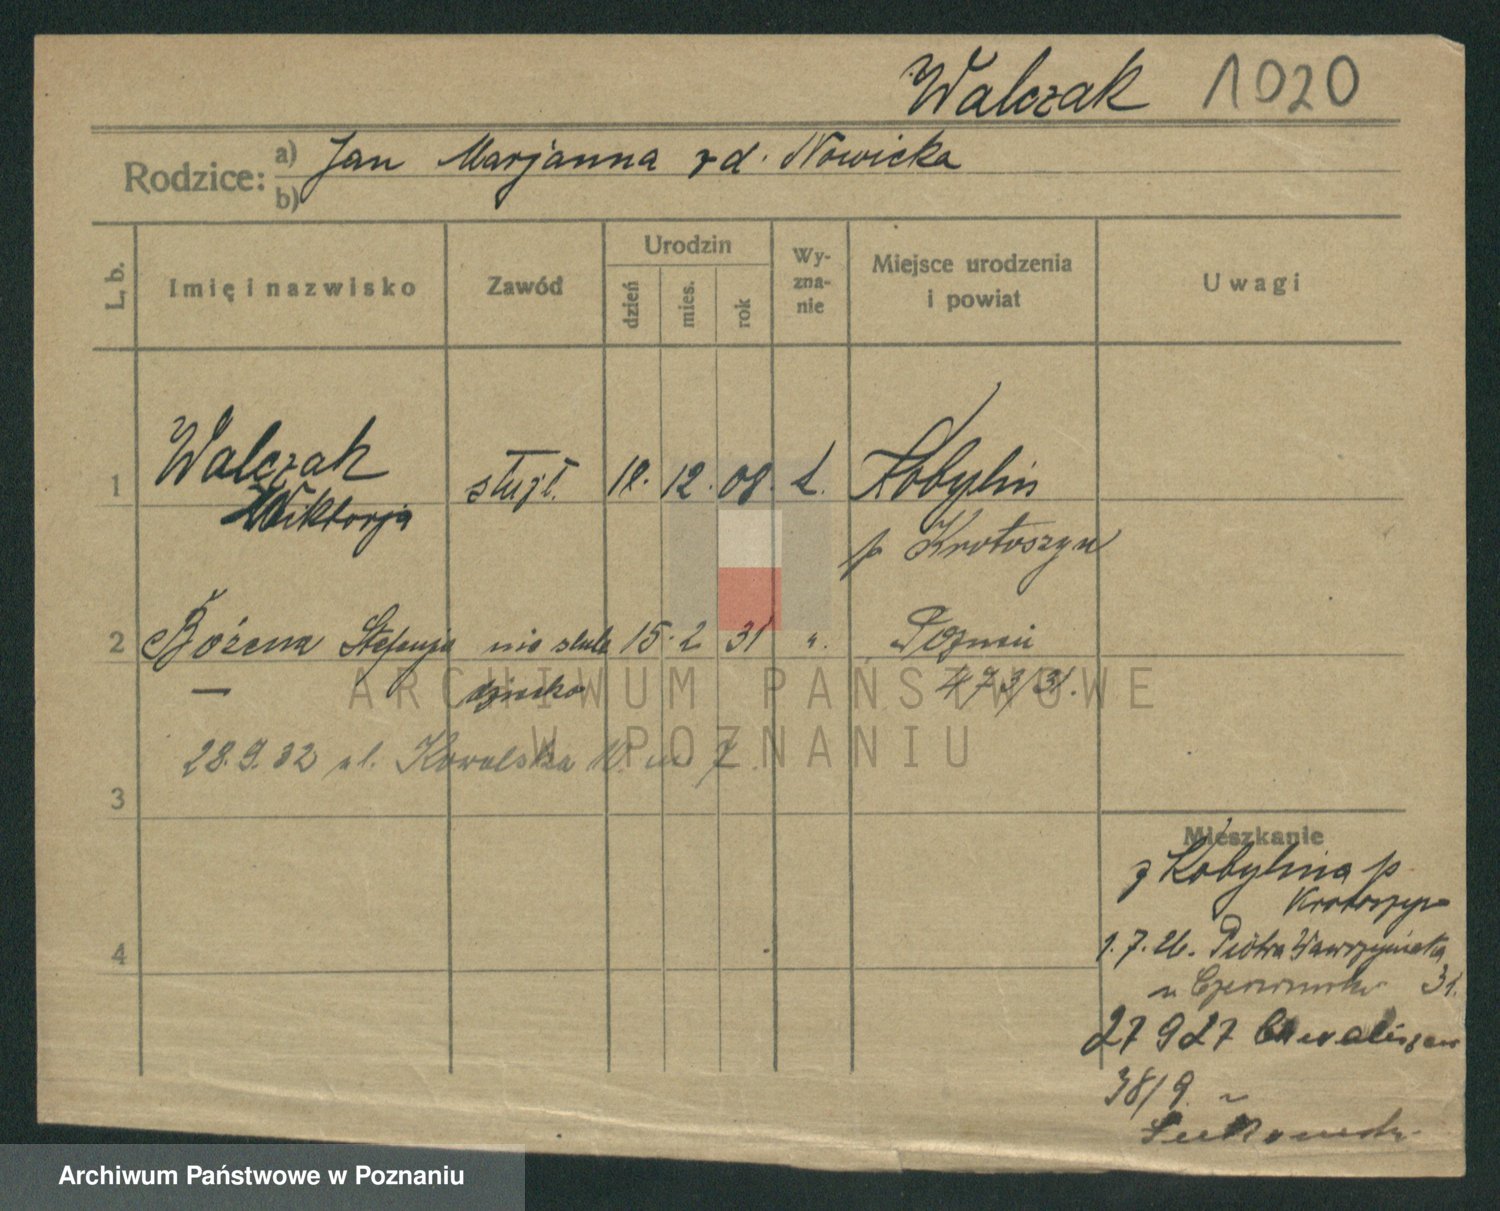 Walczak 1020
Rodzice: a) Jan Marjanna rd. Nowicka
b)
L. b. Imię i nazwisko Zawód Urodzin dzień mies. rok Wy-zna-nie Miejsce urodzenia i powiat Uwagi
1 Walczak służ. 12. 08. Kobylin
Wiktorja p Krotoszyn
2 Bożena Stefanja 15. 2 31 ". Poznań
— dziecko 473/31.
28.9.32 ul. Kowalska 10. m 7
3
Mieszkanie
z Kobylina p
Krotoszyn
4
1.7.26. Piotra Wawrzyniaka
31.
27 9 27
38/9.
ARCHIWUM PAŃSTWOWE
W POZNANIU
Archiwum Państwowe w Poznaniu